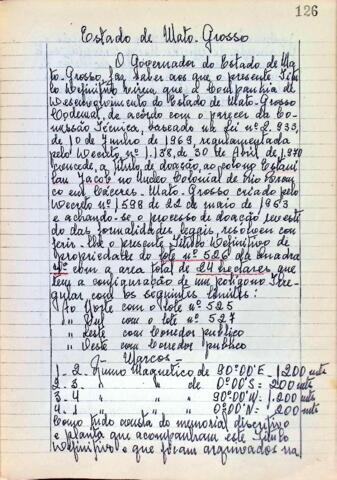 126
Estado de Mato-Grosso
O Governador do Estado de Ma-
to-Grosso, faz saber aos que o presente Titu-
lo Definitivo virem que a Companhia de
Desenvolvimento do Estado de Mato-Grosso
Codemat, de acordo com o parecer da Co-
missão Técnica, baseado na lei nº 2.933,
de 10 de Junho de 1969, regulamentada
pelo Decreto nº 1.138, de 30 de Abril de 1.970
concede, a titulo de doação, ao colono
Jacob no Nucleo Colonial de Rio Branco
em Cáceres - Mato-Grosso criado pelo
Decreto nº 1598 de 22 de maio de 1963
e achando-se o processo de doação revesti
do das formalidades legais, resolveu con
ferir-lhe o presente Titulo Definitivo de
Propriedade do lote nº 526 da quadra
4ª com a area total de 24 hectares que
tem a configuração de um poligono Irre-
gular com os seguintes limites:
Ao Norte com o lote nº 525
" Sul com o lote nº 527
" Leste com Corredor publico
" Oeste com Corredor publico
- Marcos -
1 - 2 - Rumo Magnetico de 90º00'E = 1.200 mts
2 - 3 " " de 0º00'S = 200 mts
3 - 4 " " 90º00'W = 1.200 mts
4 - 1 " " 0º00'N = 200 mts
Como tudo consta do memorial discritivo
e planta que acompanham este Titulo
Definitivo e que foram arquivados na